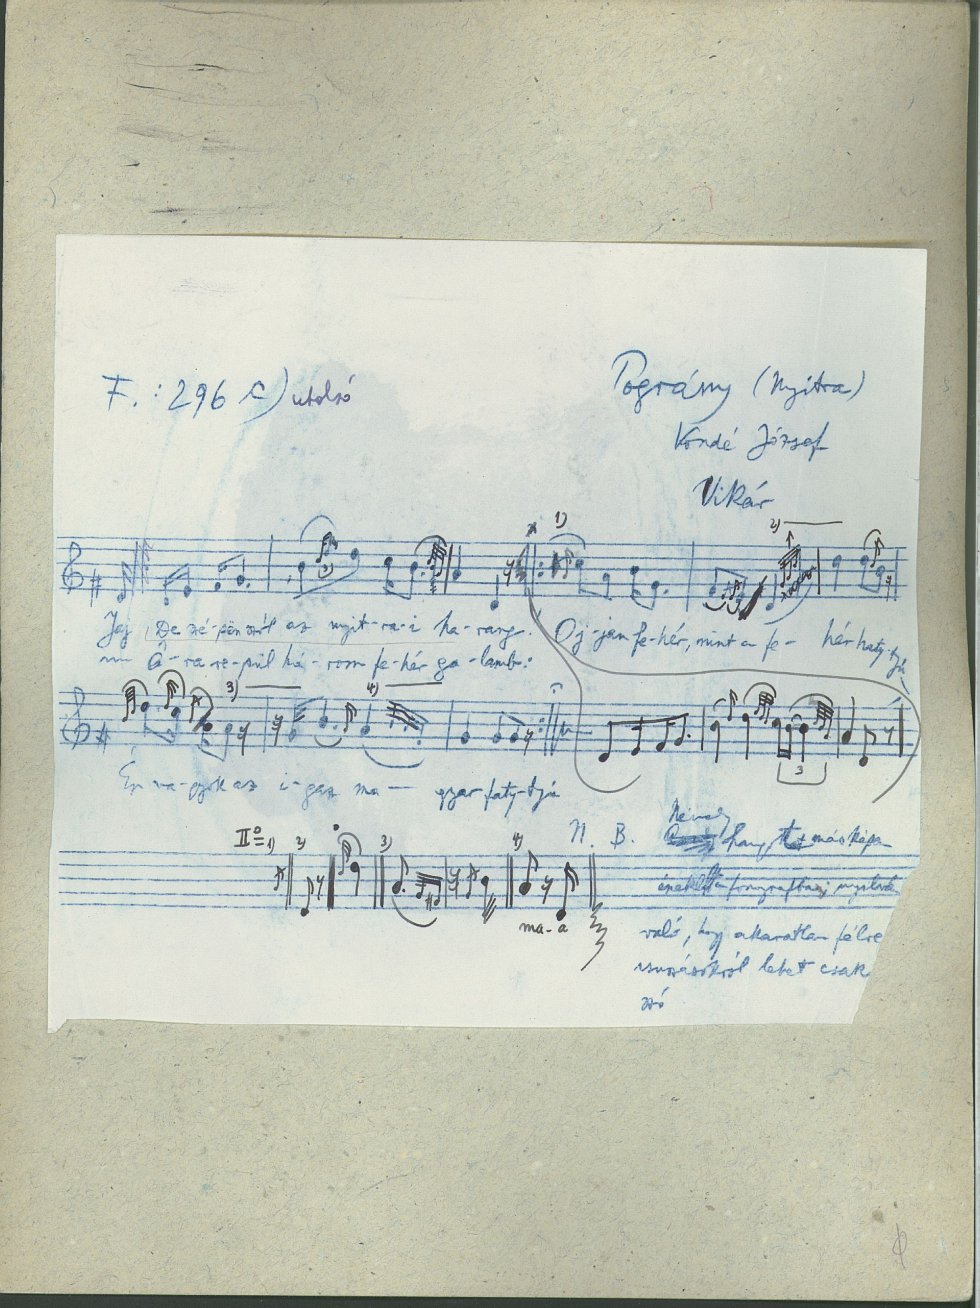 F.: 296 c) utolsó
Pográny (Nyitra)
Kondé József
Vikár
1)
2)
Jaj De szé-pen szól az nyit-ra-i ha-rang. Oj-jan fe-hér, mint a fe- hér haty-tyú
Á-ra-re-pül há-rom fe-hér ga-lamb:
3)
4)
Én va-gyok az i-gaz ma- gyar faty-tyú
3
II° = 1) 2) 3) 4)
ma-a
N. B. Némely
hangot másképp
énekelt a fonográfba; nyilván
való, hogy akaratlan félre
csuszásokról lehet csak
szó